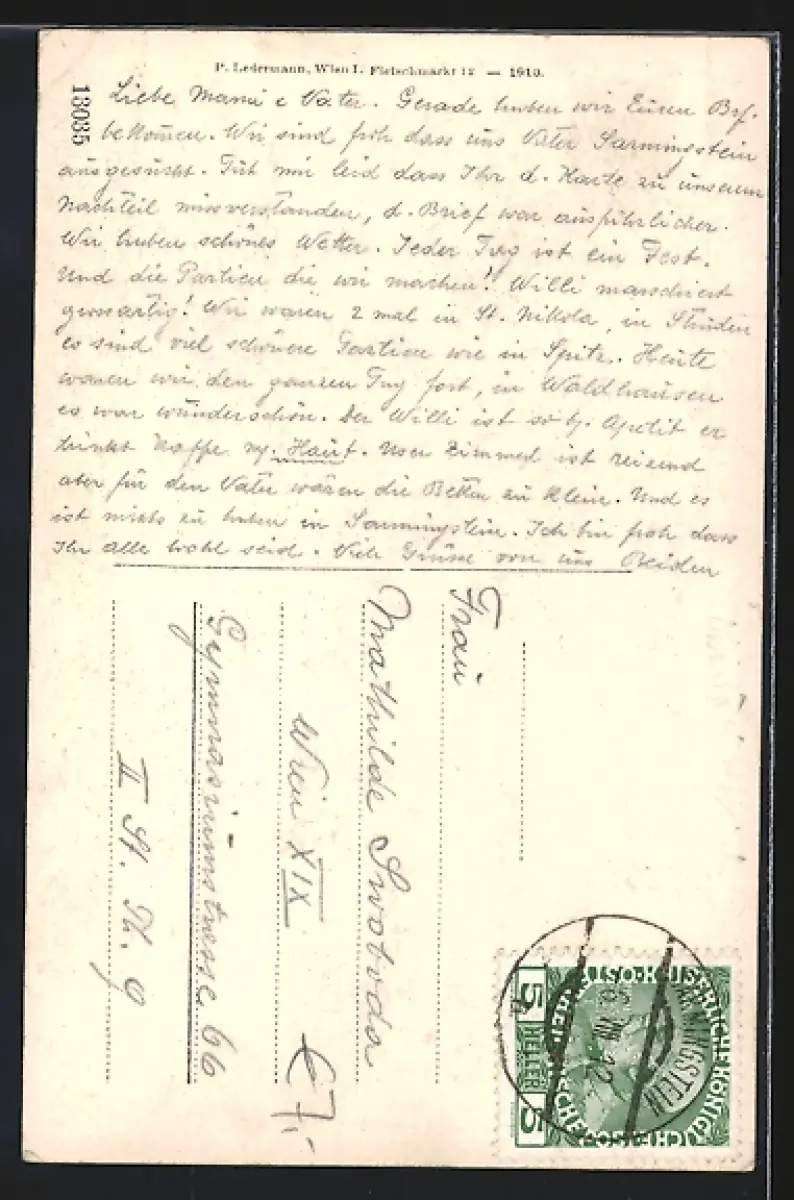 P. Ledermann, Wien I. Fleischmarkt 12 — 1910.
13035
Liebe Mami e Vater. Gerade haben wir Euren Brf.
bekommen. Wir sind froh dass uns Vater Sarmingstein
ausgesucht. Tut mir leid dass Ihr d. Karte zu unserem
Nachteil missverstanden, d. Brief war ausführlicher.
Wir haben schönes Wetter. Jeder Tag ist ein Fest.
Und die Partien die wir machen! Willi marschiert
grossartig! Wir waren 2 mal in St. Nikola, in Struden
es sind viel schönere Partien wie in Spitz. Heute
waren wir den ganzen Tag fort, in Waldhausen
es war wunderschön. Der Willi ist so b. Apetit er
trinkt Kaffe m. Haut. Unser Zimmer ist reizend
aber für den Vater wären die Betten zu klein. Und es
ist nichts zu haben in Sarmingstein. Ich bin froh dass
Ihr alle wohl seid. Viele Grüsse von uns Beiden
Frau
Mathilde Swoboda
Wien XIX
Gymnasiumstrasse 66
II St. Th. 9
€ 7,-
KAISERLICHE KÖNIGLICHE ÖSTERREICHISCHE POST
5 HELLER 5
SARMINGSTEIN